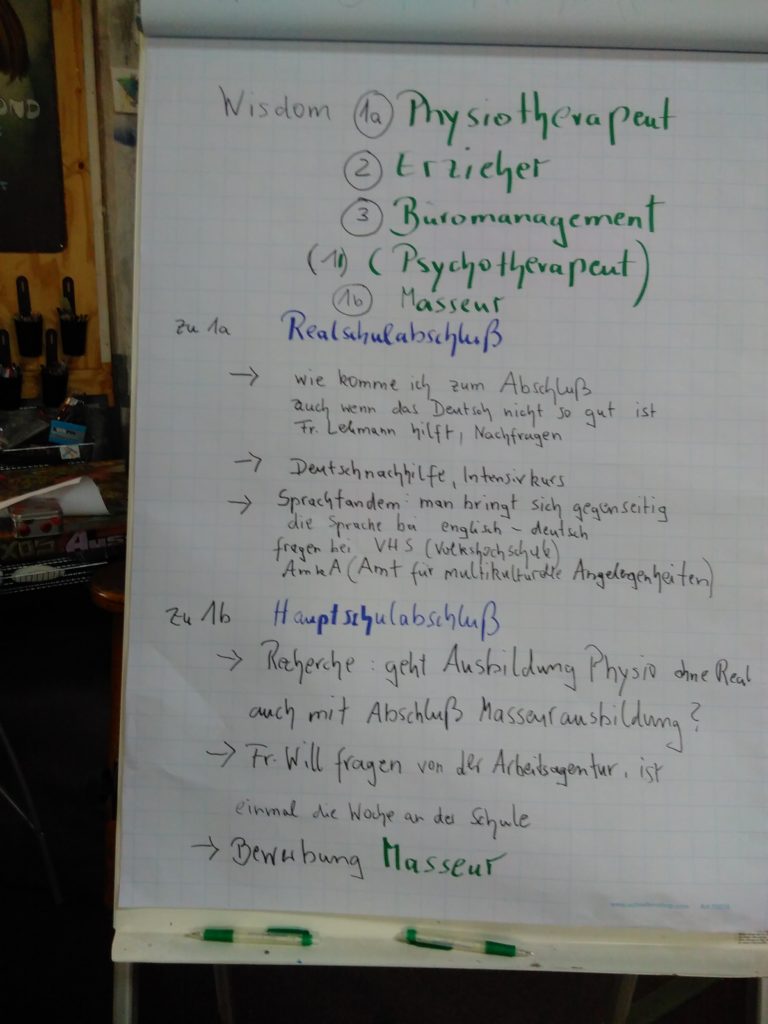 OND
Wisdom 1a Physiotherapeut
2 Erzieher
3 Büromanagement
(1) (Psychotherapeut)
1b Masseur
zu 1a Realschulabschluß
→ wie komme ich zum Abschluß
auch wenn das Deutsch nicht so gut ist
Fr. Lehmann hilft, Nachfragen
→ Deutschnachhilfe, Intensivkurs
→ Sprachtandem: man bringt sich gegenseitig
die Sprache bei englisch - deutsch
fragen bei VHS (Volkshochschule)
AmkA (Amt für multikulturelle Angelegenheiten)
zu 1b Hauptschulabschluß
→ Recherche: geht Ausbildung Physio ohne Real
auch mit Abschluß Masseurausbildung?
→ Fr. Will fragen von der Arbeitsagentur, ist
einmal die Woche an der Schule
→ Bewerbung Masseur